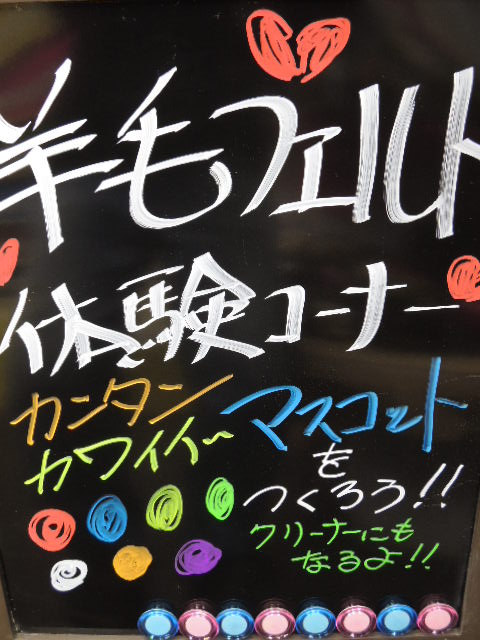 羊毛フェルト
体験コーナー
カンタン
カワイイ〜
マスコット
を
つくろう!!
クリーナーにも
なるよ!!